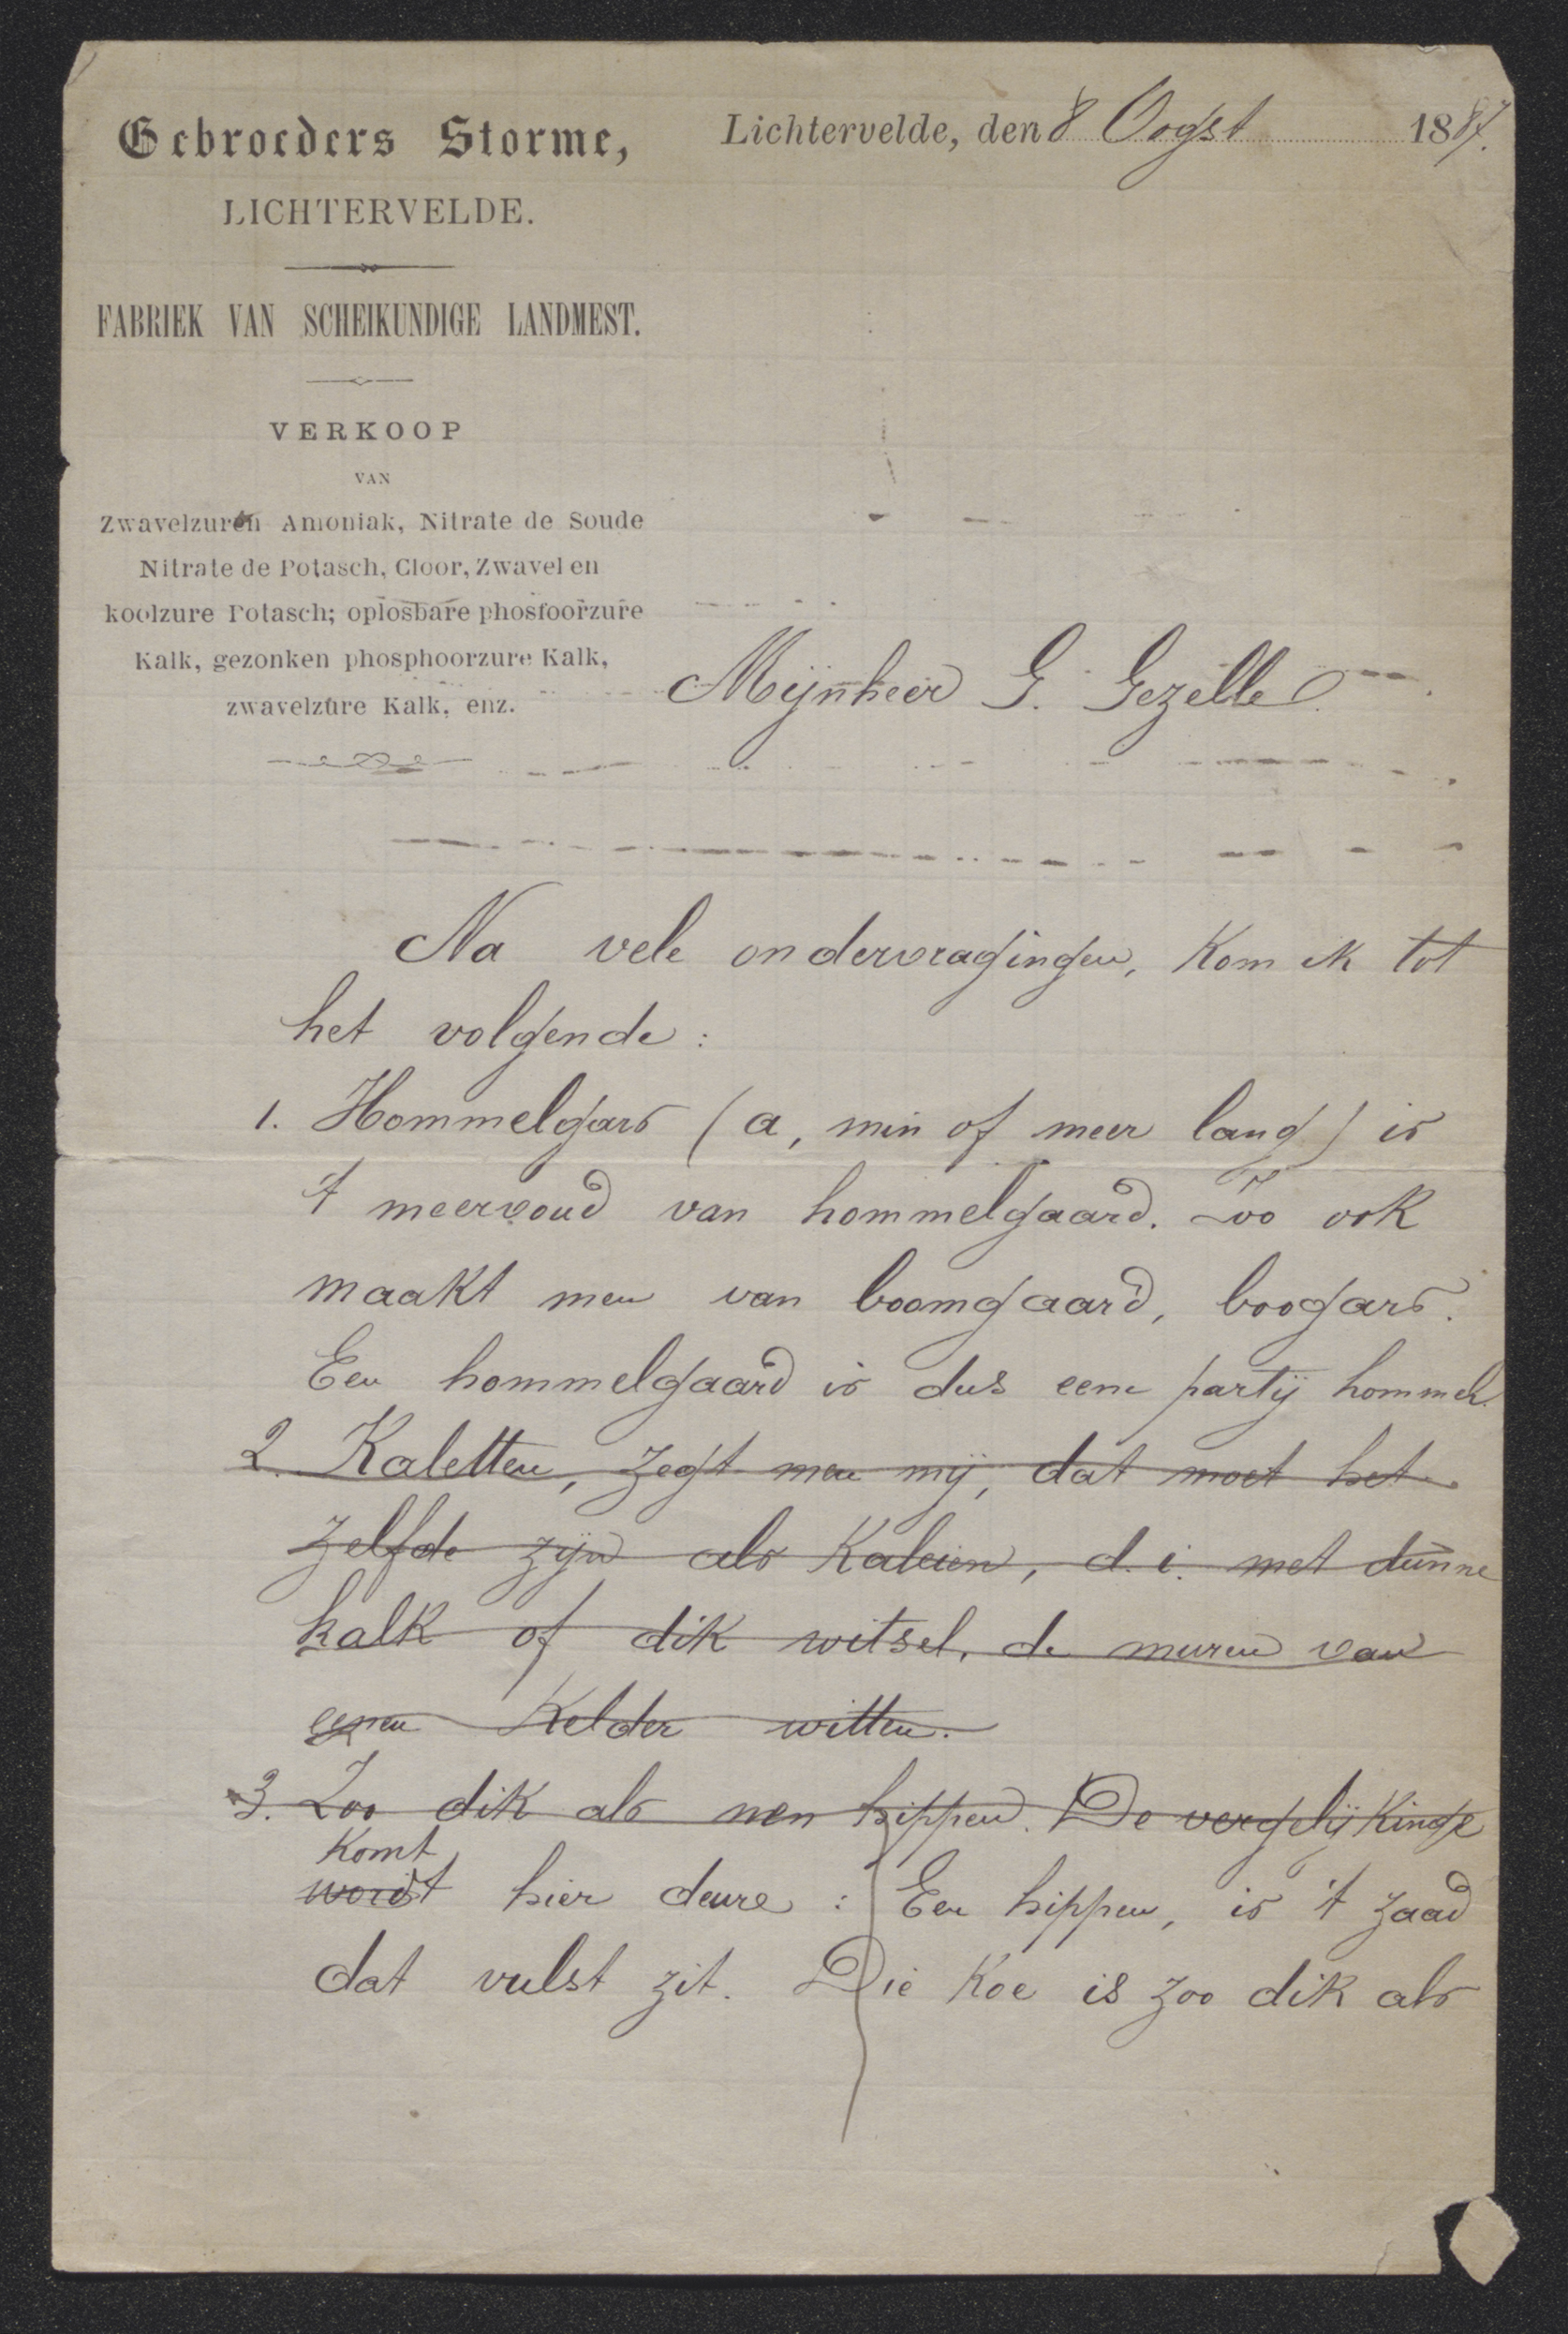 Gebroeders Storme,
LICHTERVELDE.
FABRIEK VAN SCHEIKUNDIGE LANDMEST.
VERKOOP
VAN
Zwavelzuren Amoniak, Nitrate de Soude
Nitrate de Potasch, Cloor, Zwavel en
koolzure Potasch; oplosbare phosfoorzure
Kalk, gezonken phosphoorzure Kalk,
zwavelzure Kalk, enz.
Lichtervelde, den 8 Oogst 1887.
Mijnheer G. Gezelle.
Na vele ondervragingen, kom ik tot
het volgende:
1. Hommelgars (a, min of meer lang) is
't meervoud van hommelgaard. Zoo ook
maakt men van boomgaard, boogars.
Een hommelgaard is dus eene partij hommel.
2. Kaletten, zegt men mij, dat moet het
zelfde zijn als Kaleien, d.i. met dunne
kalk of dik witsel, de muren van
eenen Kelder witten.
3. Zoo dik als nen hippen. De vergelijkinge
komt
wordt hier deure: Een hippen, is 't zaad
dat vulst zit. Die Koe is zoo dik als